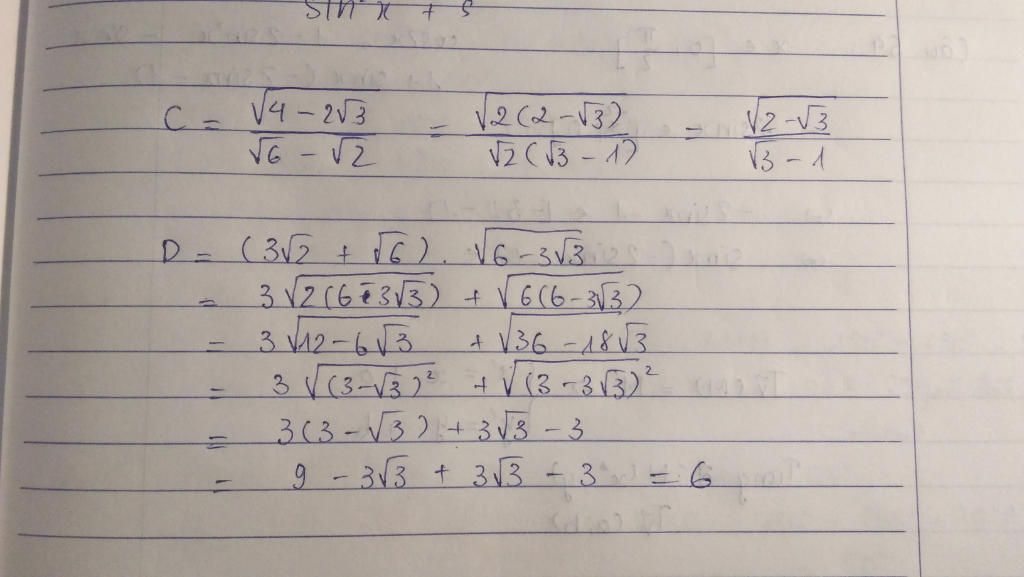 sin²x + 5
C = √(4 − 2√3) / (√6 − √2) = √(2(2 − √3)) / (√2(√3 − 1)) = √(2 − √3) / (√3 − 1)
D = (3√2 + √6) . √(6 − 3√3)
= 3√(2(6 − 3√3)) + √(6(6 − 3√3))
= 3√(12 − 6√3) + √(36 − 18√3)
= 3√((3 − √3)²) + √((3 − 3√3)²)
= 3(3 − √3) + 3√3 − 3
= 9 − 3√3 + 3√3 − 3 = 6